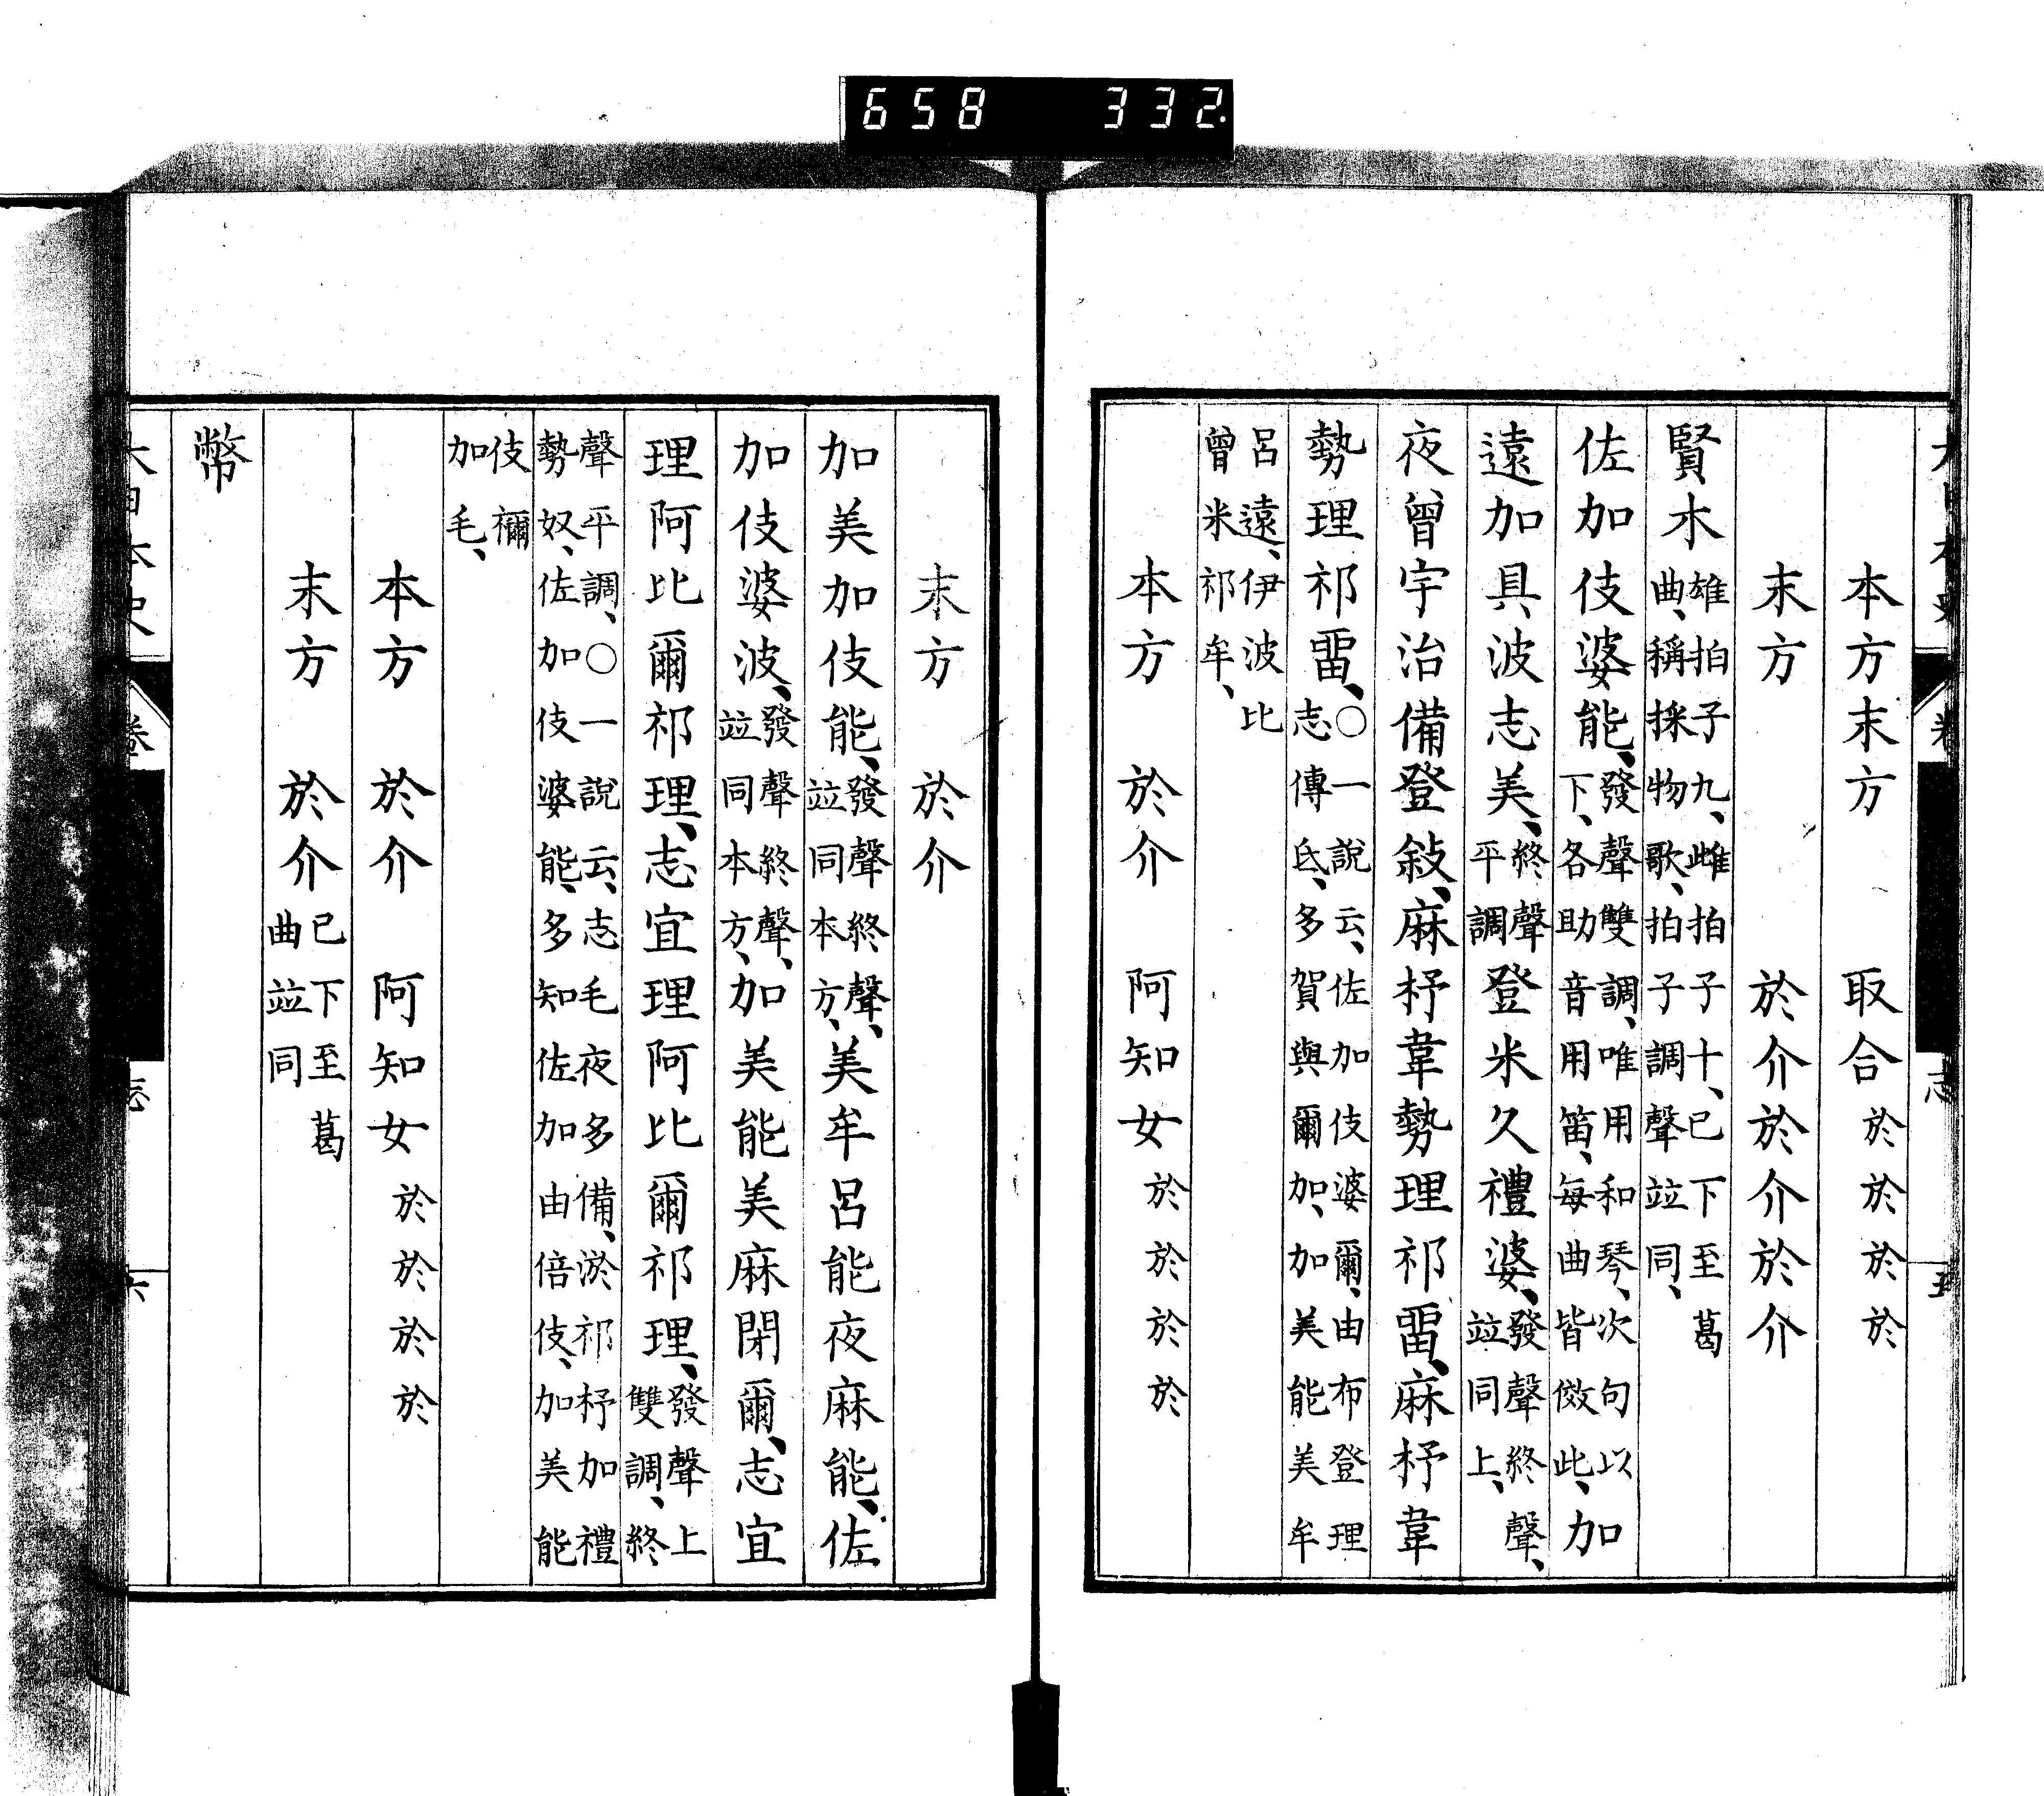 658 332
本方末方 取合於於於於
末方 於介於介於介
賢木雄拍子九、雌拍子十、已下至葛
曲、稱採物歌、拍子調聲竝同、
佐加伎婆能、發聲雙調、唯用和琴、次句以
下、各助音用笛、每曲皆倣此、加
遠加具波志美、終聲
平調登米久禮婆、發聲終聲、
竝同上、
夜曾宇治備登敍、麻杼韋勢理祁
畱、麻杼韋
勢理祁畱、○一說云、佐加伎婆爾、由布登理
志傳氐、多賀與爾加、加美能美牟
呂遠、伊波比
曾米祁牟、
本方 於介 阿知女於於於於
末方 於介
加美加伎能、發聲終聲、
竝同本方、美牟呂能夜麻能、佐
加伎婆波、發聲終聲、
竝同本方、加美能美麻閇爾、志宜
理阿比爾祁理、志宜理阿比爾祁理、發聲上
雙調、終
聲平調、○一說云、志毛夜多備、淤祁杼加禮
勢奴、佐加伎婆能、多知佐加由倍伎、加美能
伎禰
加毛、
本方 於介 阿知女於於於於
末方 於介已下至葛
曲竝同
幣